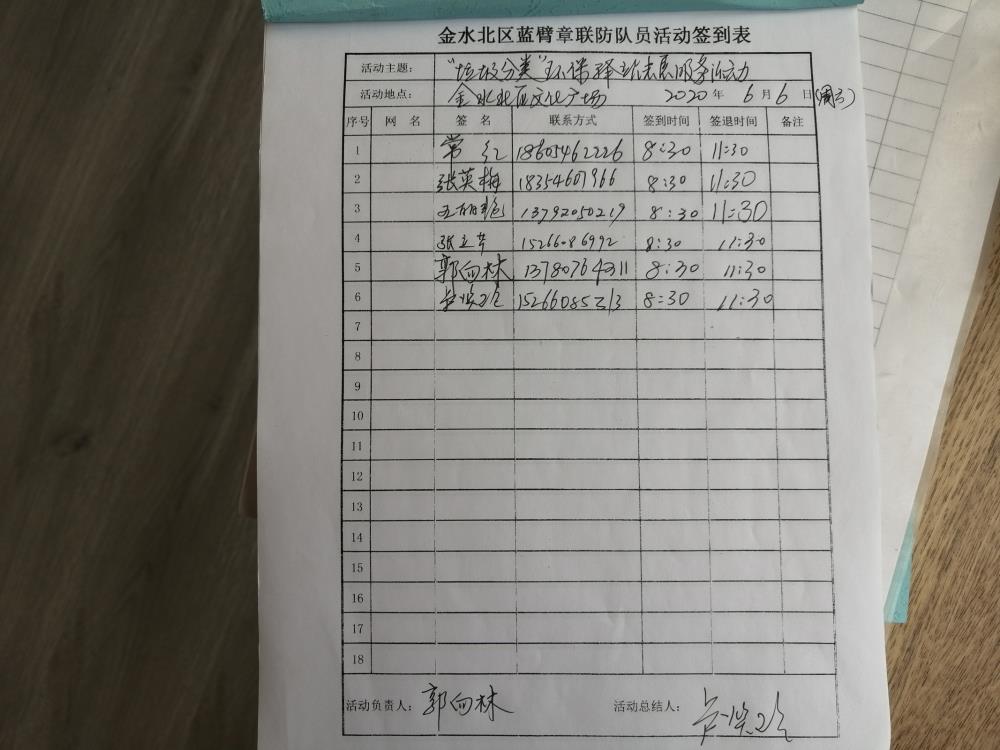 金水北区蓝臂章联防队员活动签到表
活动主题： "垃圾分类"环保驿站志愿服务活动
活动地点： 金水北区文化广场 2020 年 6 月 6 日
序号 网 名 签 名 联系方式 签到时间 签退时间 备注
1 常红 18605462226 8:30 11:30
2 张英梅 18354607966 8:30 11:30
3 13792050219 8:30 11:30
4 张立芹 1526686992 8:30 11:30
5 郭向林 13780764311 8:30 11:30
6 15266085213 8:30 11:30
7
8
9
10
11
12
13
14
15
16
17
18
活动负责人： 郭向林 活动总结人：